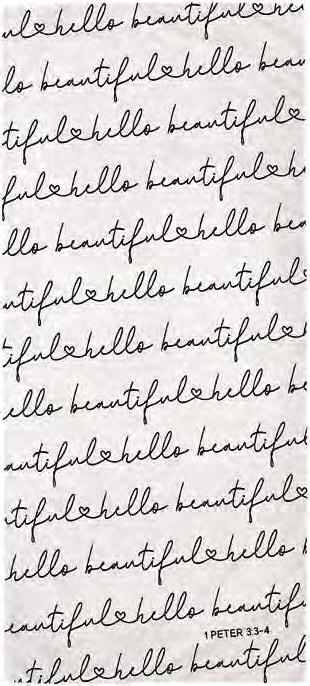 ul♡hello beautiful♡he
lo beautiful♡hello beau
tiful♡hello beautiful♡
ful♡hello beautiful♡h
llo beautiful♡hello bea
utiful♡hello beautiful♡
iful♡hello beautiful♡
ello beautiful♡hello be
autiful♡hello beautiful
tiful♡hello beautiful♡
hello beautiful♡hello b
eautiful♡hello beautifu
1 PETER 3:3-4
utiful♡hello beautiful